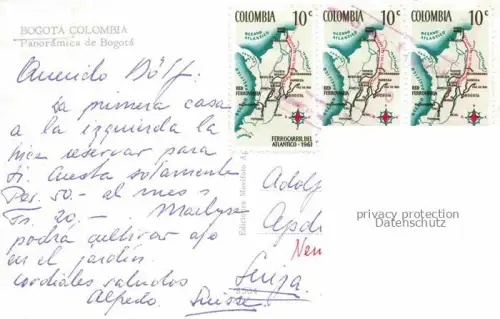 BOGOTA COLOMBIA
Panorámica de Bogotá
Querido Dölf.
La primera casa
a la izquierda la
hice reservar para
ti. Cuesta solamente
50.- al mes =
Fr. 20.-
podra cultivar ajo
en el jardín.
cordiales saludos
Alfredo.
COLOMBIA 10c
RED FERROVIARIA
FERROCARRIL DEL
ATLANTICO - 1961
COLOMBIA 10c
OCEANO
ATLANTICO
RED FERROVIARIA
FERROCARRIL DEL
ATLANTICO - 1961
COLOMBIA 10c
OCEANO
ATLANTICO
RED FERROVIARIA
FERROCARRIL DEL
ATLANTICO - 1961
Ediciones Movifoto
Adolf
privacy protection
Datenschutz
Suiza
Suisse